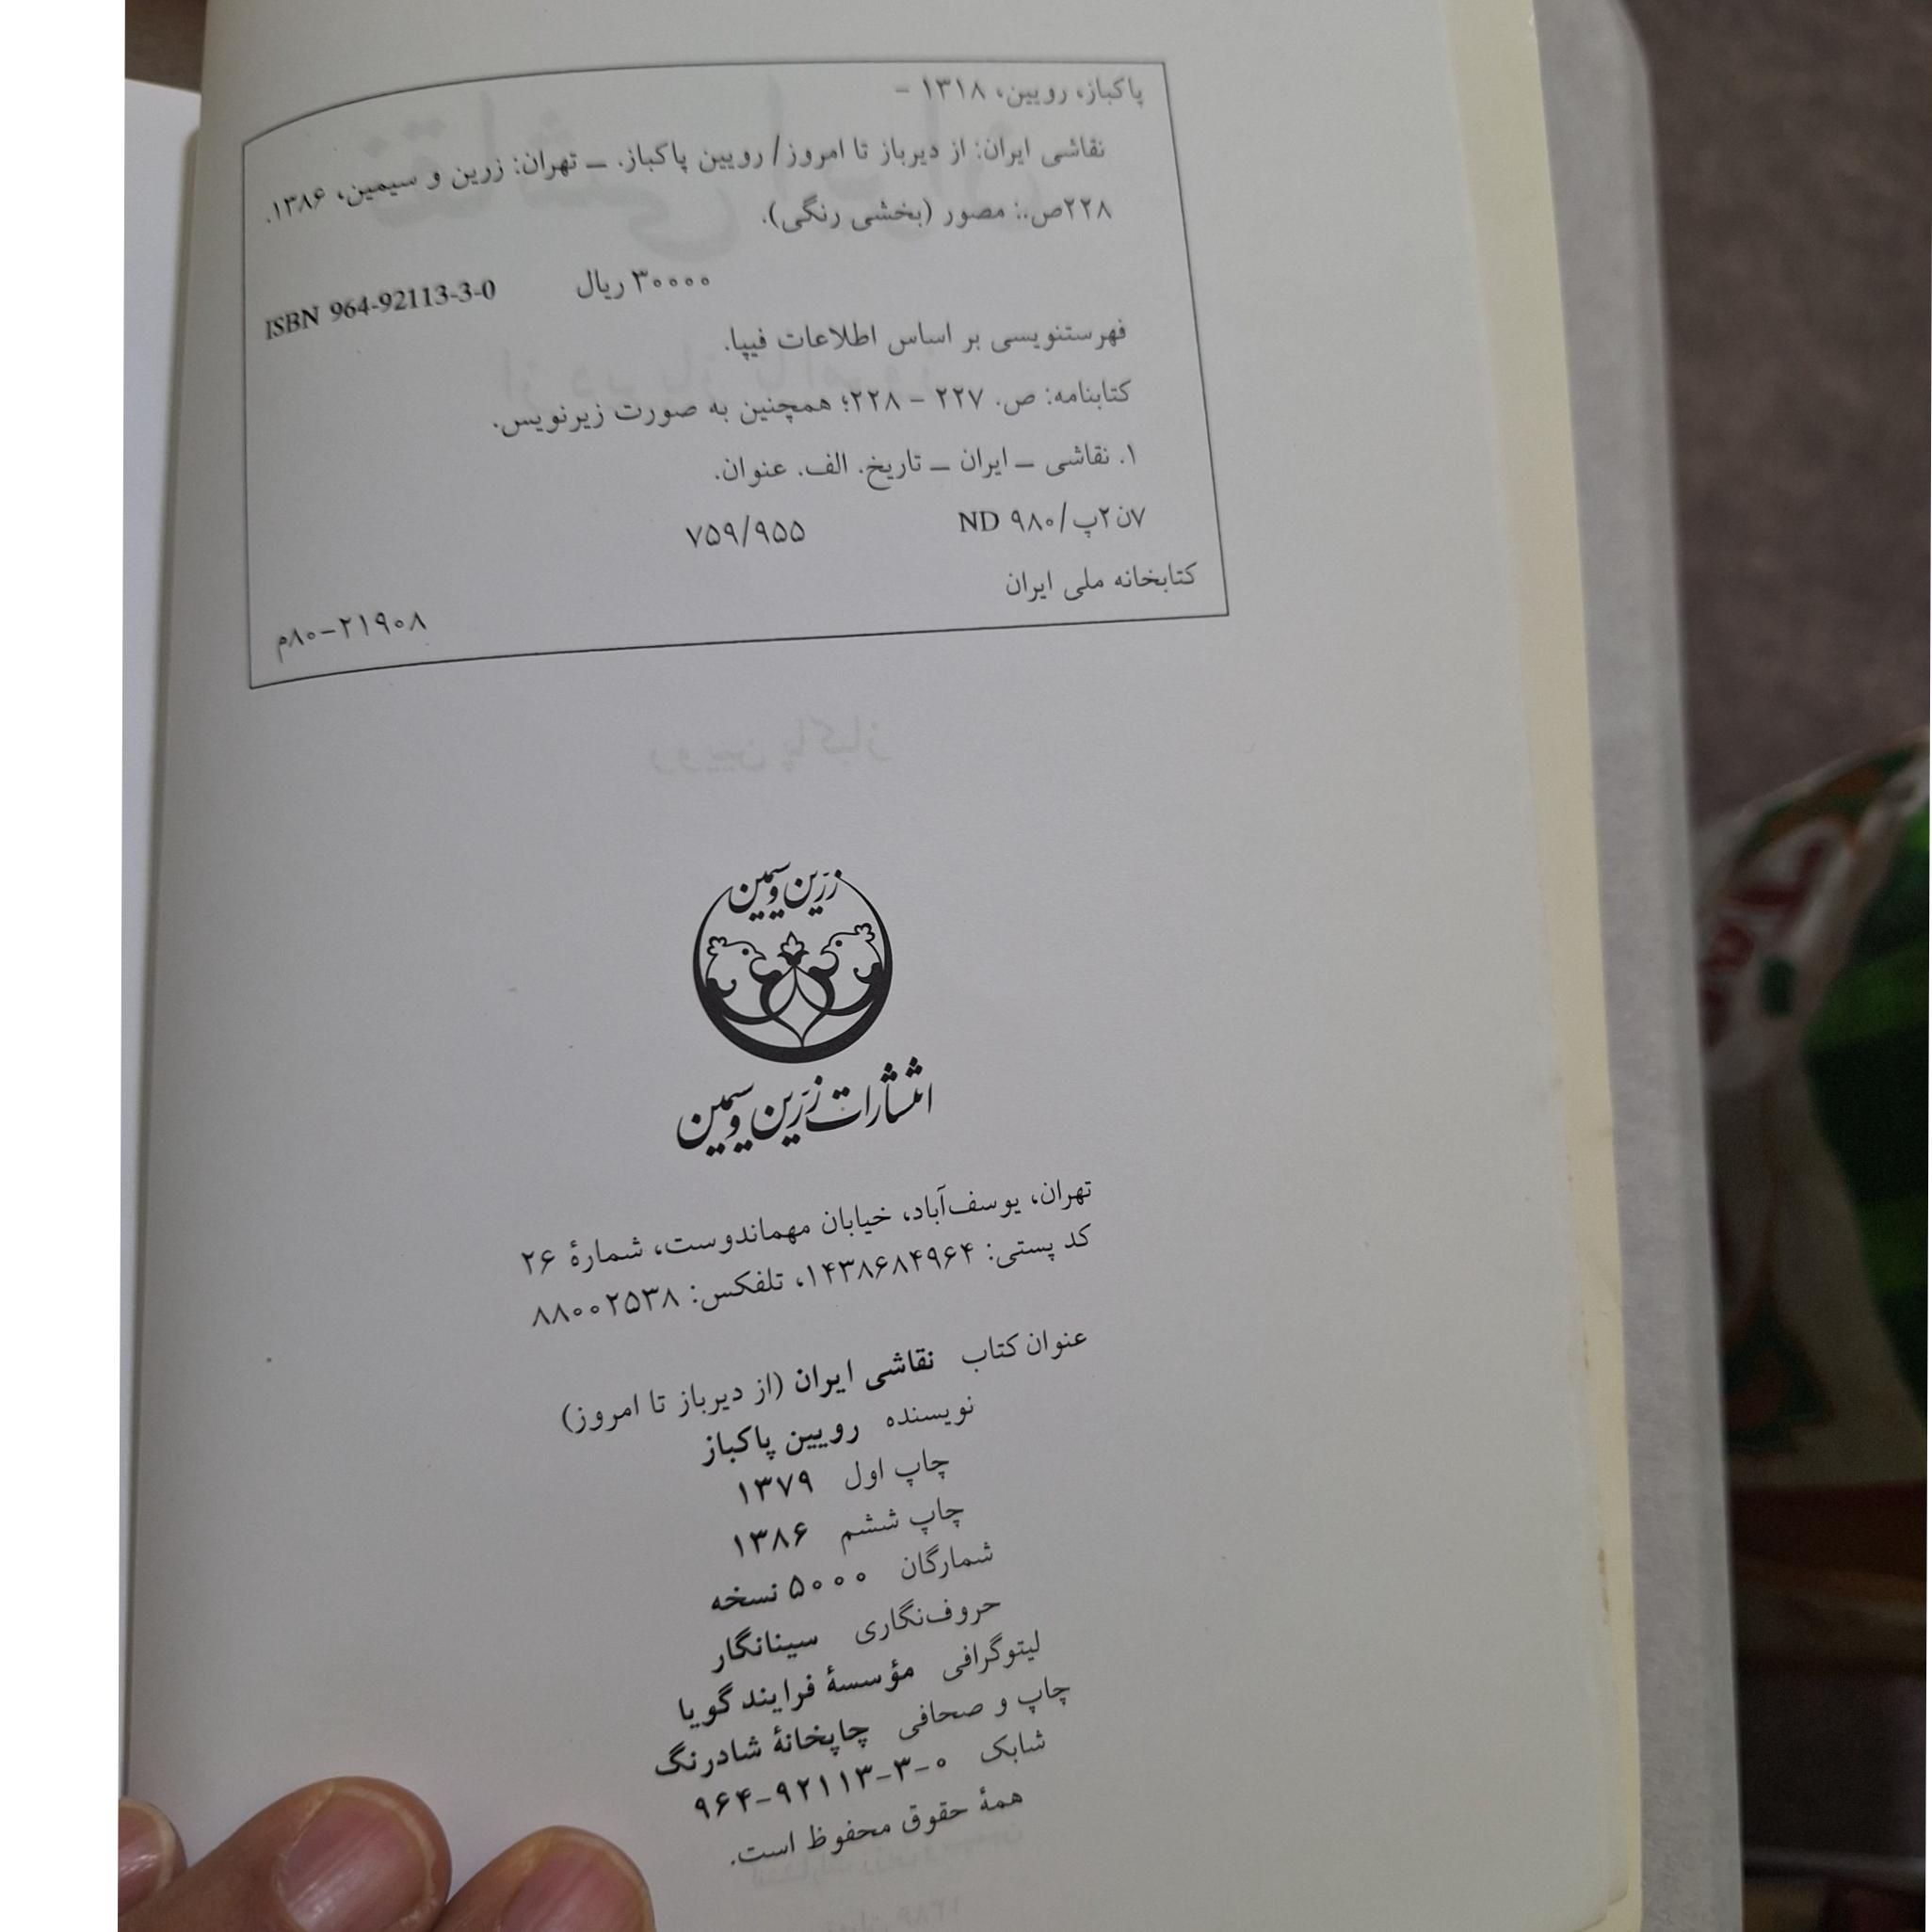 پاکباز، رویین، ۱۳۱۸ –
نقاشی ایران: از دیرباز تا امروز/ رویین پاکباز. ـــ تهران: زرین و سیمین، ۱۳۸۶.
۲۲۸ص.: مصور (بخشی رنگی).
۳۰۰۰۰ ریال ISBN 964-92113-3-0
فهرستنویسی بر اساس اطلاعات فیپا.
کتابنامه: ص. ۲۲۷ – ۲۲۸؛ همچنین به صورت زیرنویس.
۱. نقاشی ـــ ایران ـــ تاریخ. الف. عنوان.
۷ن۲پ/۹۸۰ ND ۷۵۹/۹۵۵
کتابخانه ملی ایران
۲۱۹۰۸–۸۰م
زرین و سیمین
انتشارات زرین و سیمین
تهران، یوسف‌آباد، خیابان مهماندوست، شمارهٔ ۲۶
کد پستی: ۱۴۳۸۶۸۴۹۶۴، تلفکس: ۸۸۰۰۲۵۳۸
عنوان کتاب نقاشی ایران (از دیرباز تا امروز)
نویسنده رویین پاکباز
چاپ اول ۱۳۷۹
چاپ ششم ۱۳۸۶
شمارگان ۵۰۰۰ نسخه
حروف‌نگاری سینانگار
لیتوگرافی مؤسسهٔ فرایند گویا
چاپ و صحافی چاپخانهٔ شادرنگ
شابک ۰-۳-۹۲۱۱۳-۹۶۴
همهٔ حقوق محفوظ است.